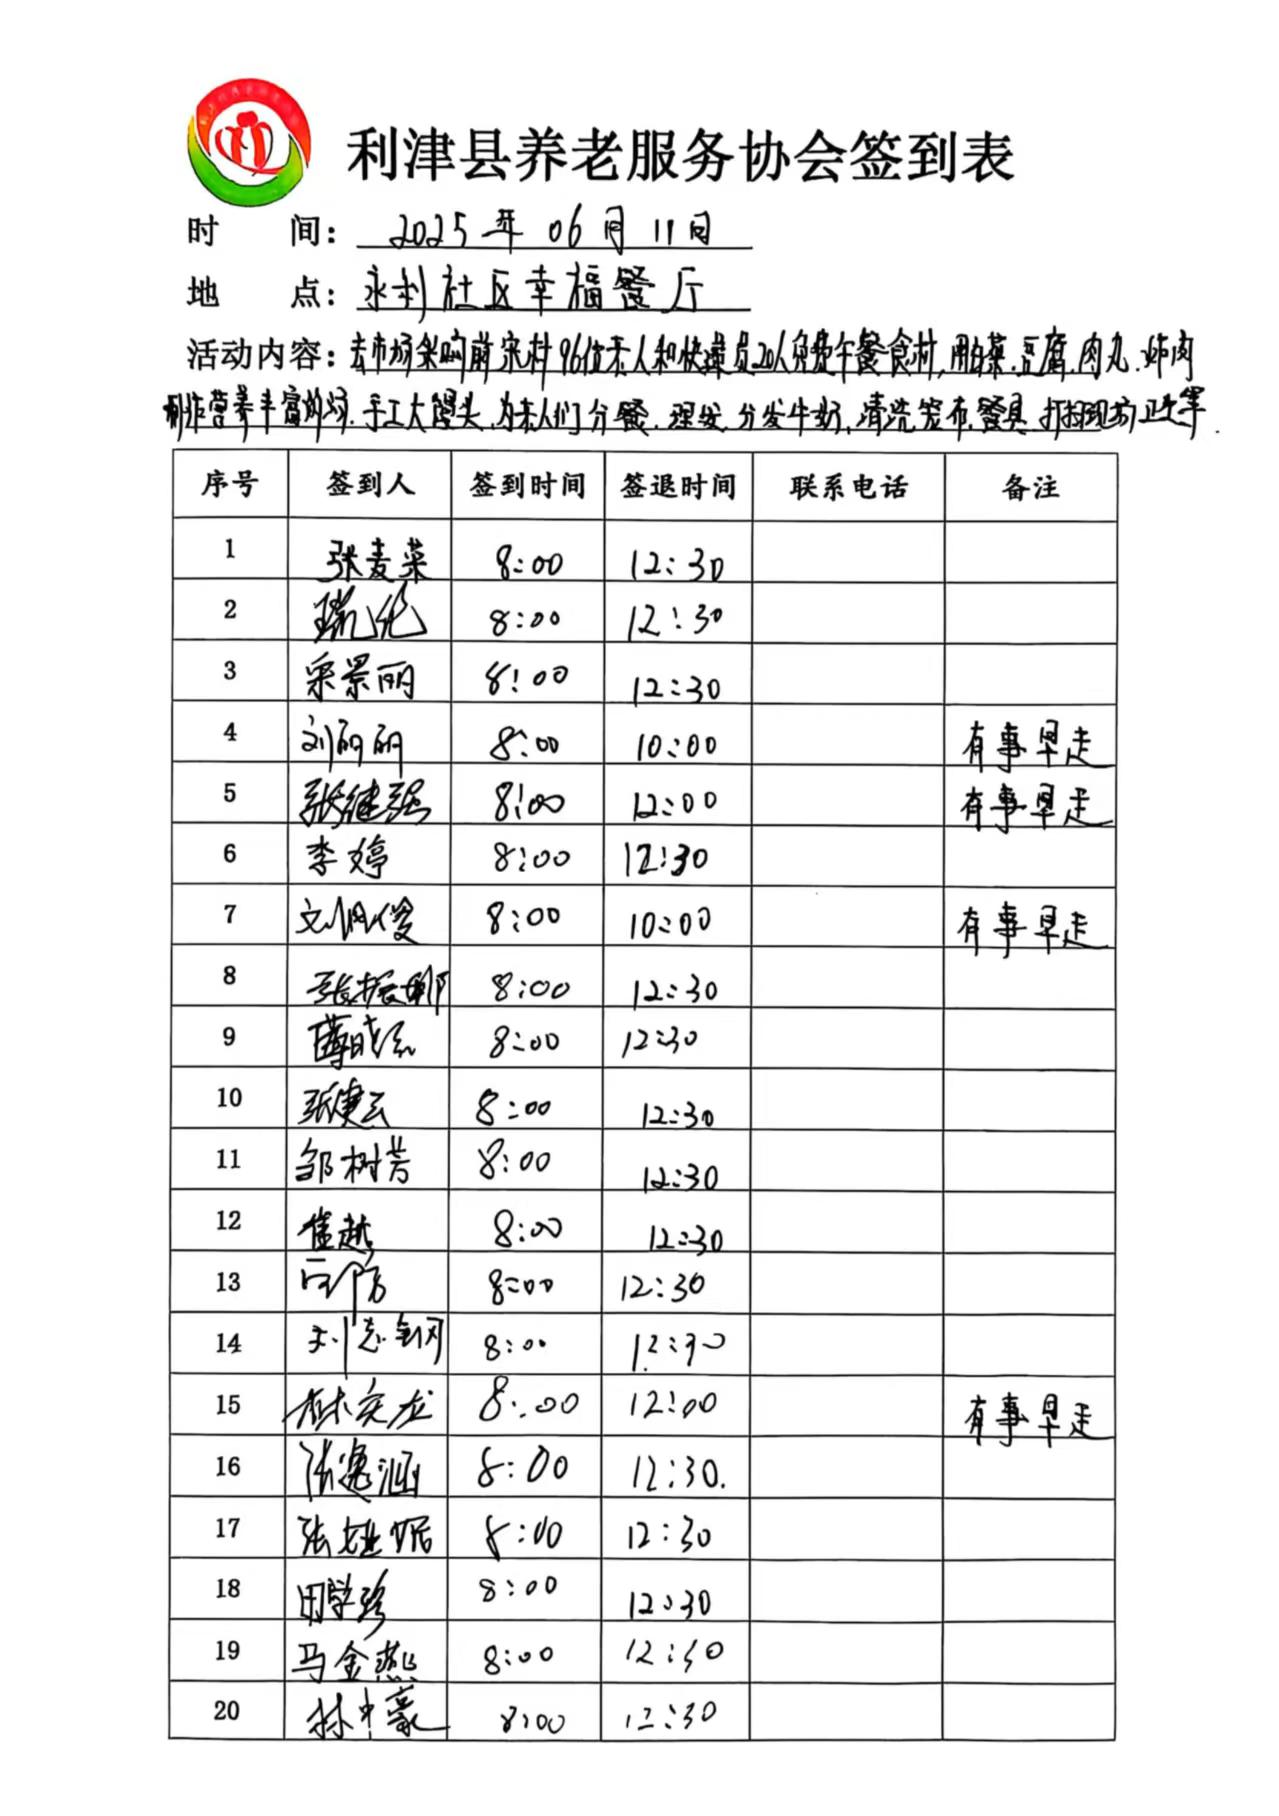 利津县养老服务协会签到表
时 间: 2025年06月11日
地 点: 永利社区幸福餐厅
活动内容: 去市场采购前宋村96位老人和快递员20人免费午餐食材,用白菜.豆腐.肉丸.炸肉
制作营养丰富的汤.手工大馒头,为老人们分餐.理发.分发牛奶,清洗笼布,餐具,打扫现场卫生等.
序号 签到人 签到时间 签退时间 联系电话 备注
1 张麦菜 8:00 12:30
2 8:00 12:30
3 宋景丽 8:00 12:30
4 刘丽丽 8:00 10:00 有事早走
5 张继强 8:00 12:00 有事早走
6 李婷 8:00 12:30
7 8:00 10:00 有事早走
8 8:00 12:30
9 8:00 12:30
10 张建云 8:00 12:30
11 邹树芳 8:00 12:30
12 崔越 8:00 12:30
13 8:00 12:30
14 刘志钢 8:00 12:30
15 8:00 12:00 有事早走
16 张逸涵 8:00 12:30.
17 8:00 12:30
18 田学珍 8:00 12:30
19 马金燕 8:00 12:30
20 林中豪 8:00 12:30